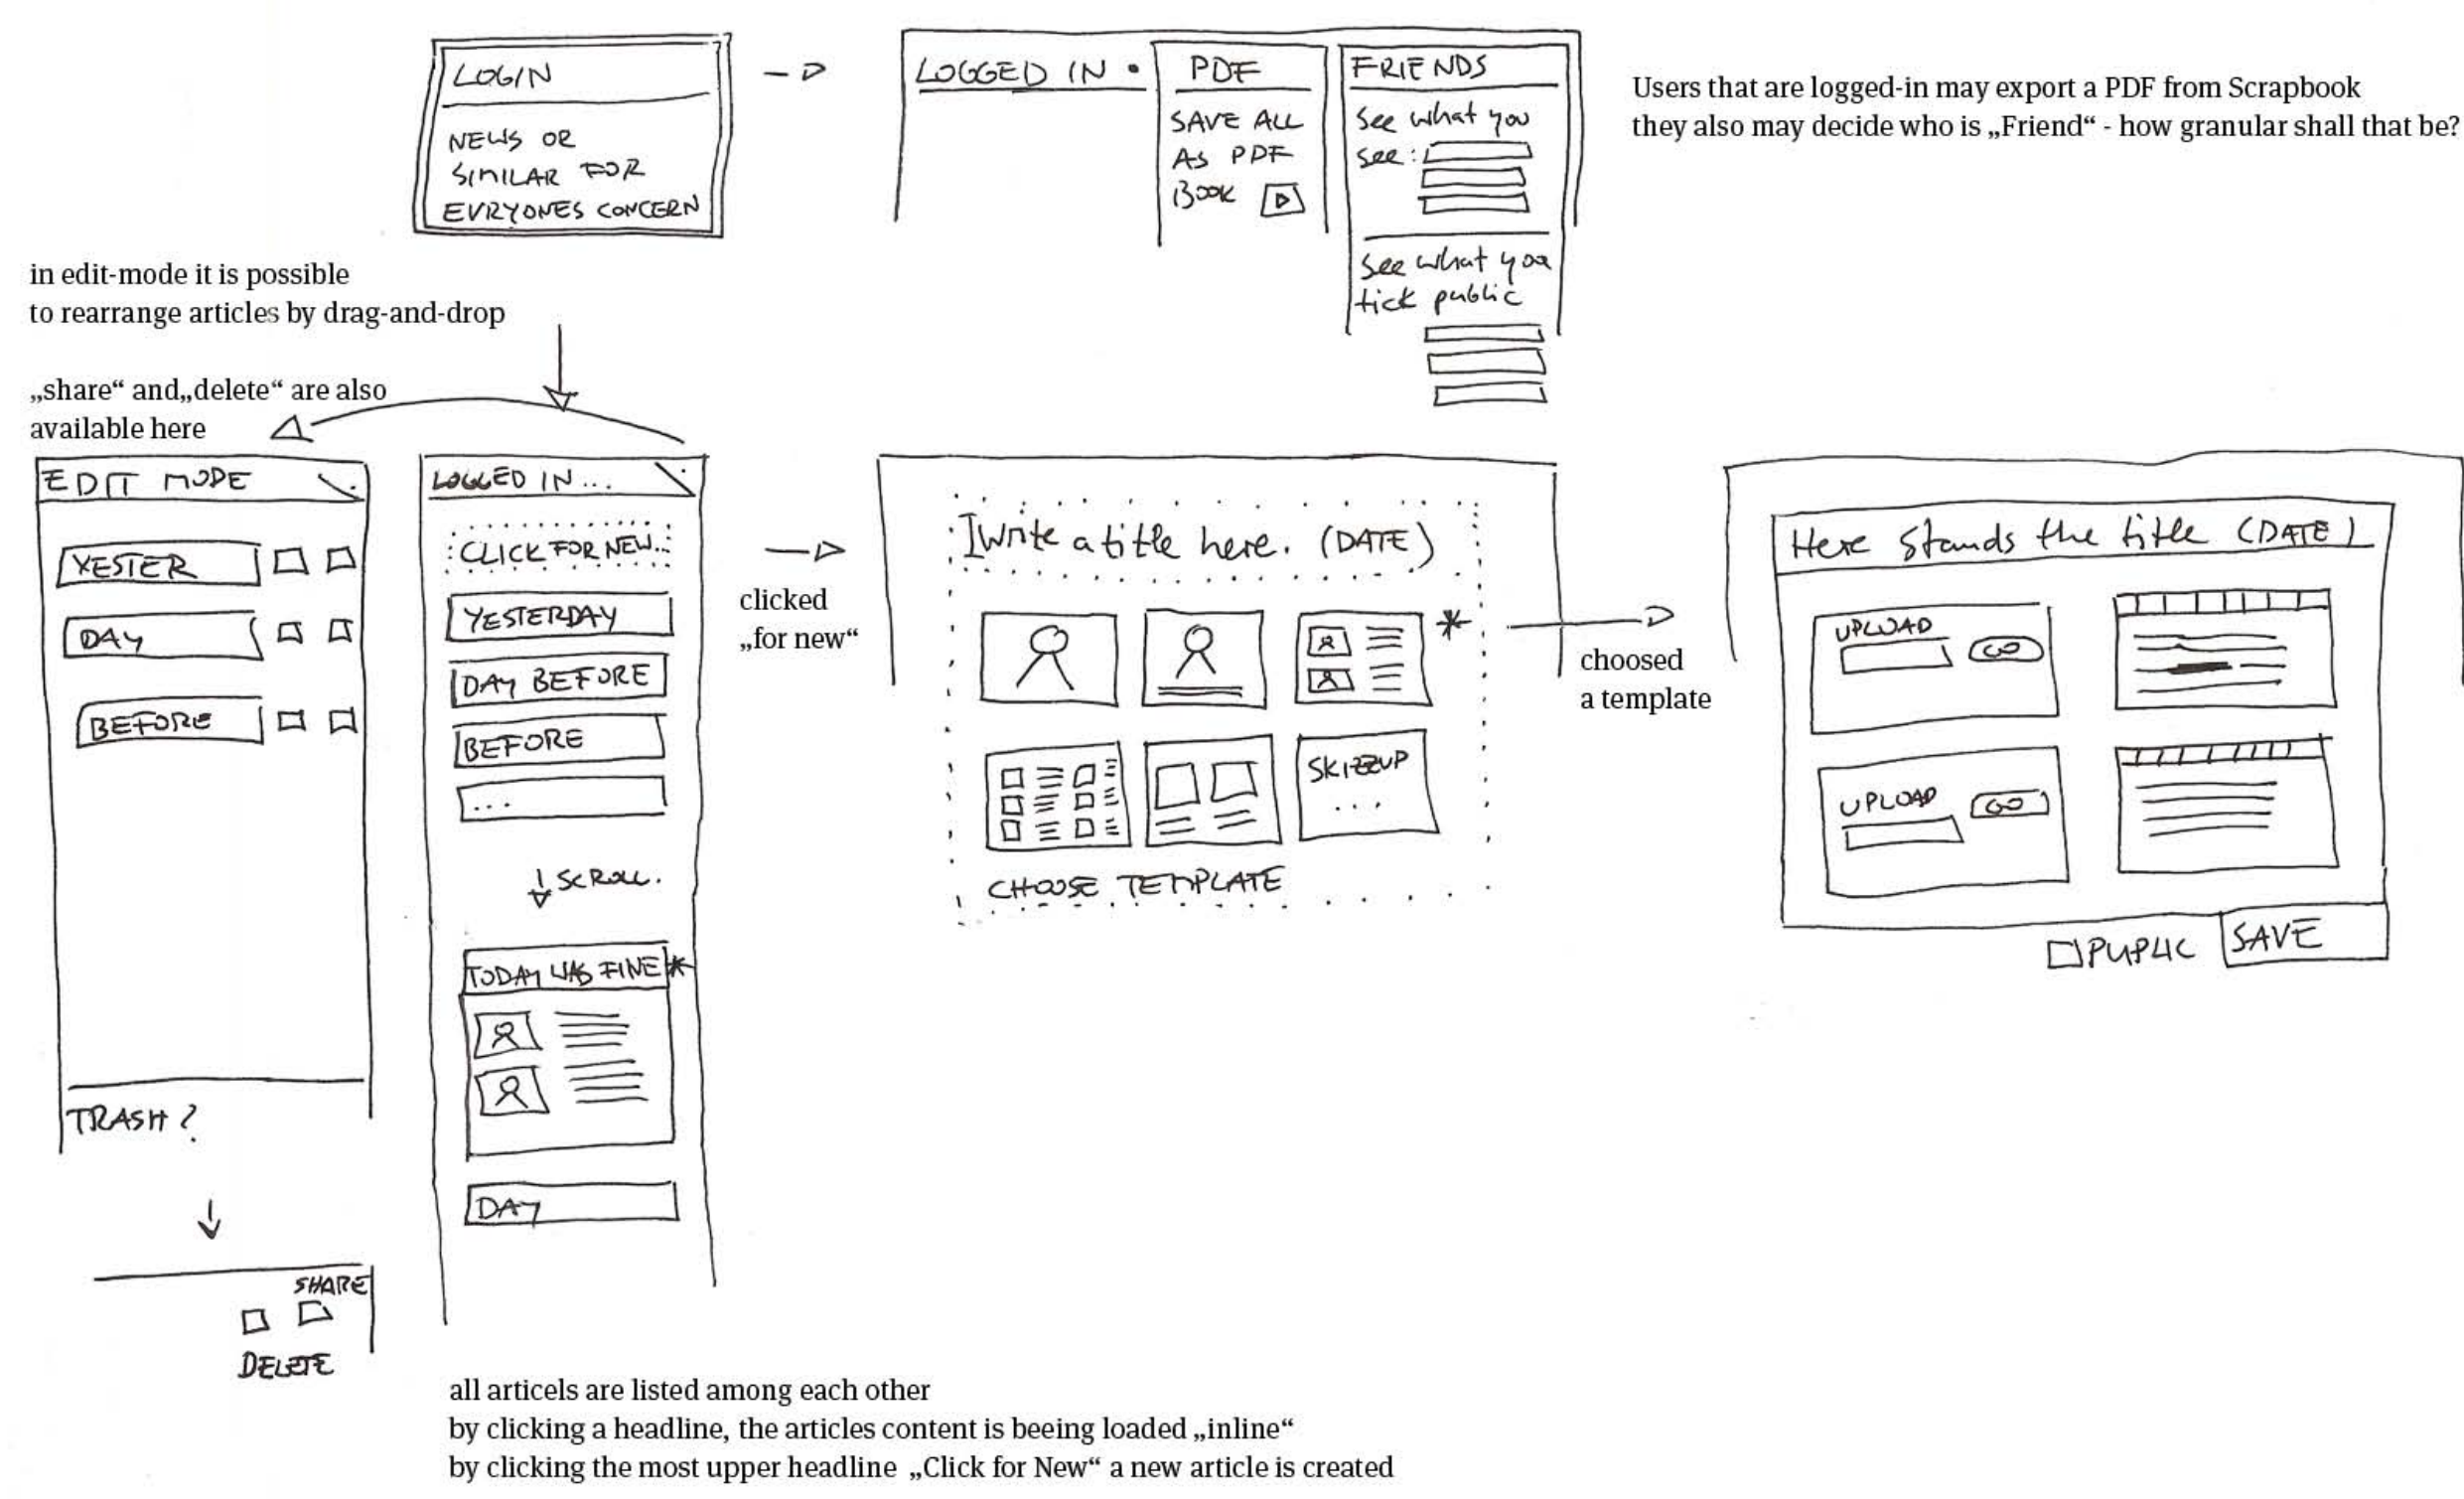 LOGIN
NEWS OR
SIMILAR FOR
EVRYONES CONCERN
LOGGED IN
PDF
SAVE ALL
AS PDF
BOOK
FRIENDS
See what you
see:
See what you
tick public
Users that are logged-in may export a PDF from Scrapbook
they also may decide who is „Friend“ - how granular shall that be?
in edit-mode it is possible
to rearrange articles by drag-and-drop
„share“ and„delete“ are also
available here
EDIT MODE
YESTER
DAY
BEFORE
TRASH?
SHARE
DELETE
LOGGED IN...
CLICK FOR NEW...
YESTERDAY
DAY BEFORE
BEFORE
...
SCROLL.
TODAY WAS FINE*
DAY
clicked
„for new“
I write a title here. (DATE)
*
SKIZZUP
...
CHOOSE TEMPLATE
choosed
a template
Here stands the title (DATE)
UPLOAD
GO
UPLOAD
GO
PUPLIC
SAVE
all articels are listed among each other
by clicking a headline, the articles content is beeing loaded „inline“
by clicking the most upper headline „Click for New“ a new article is created